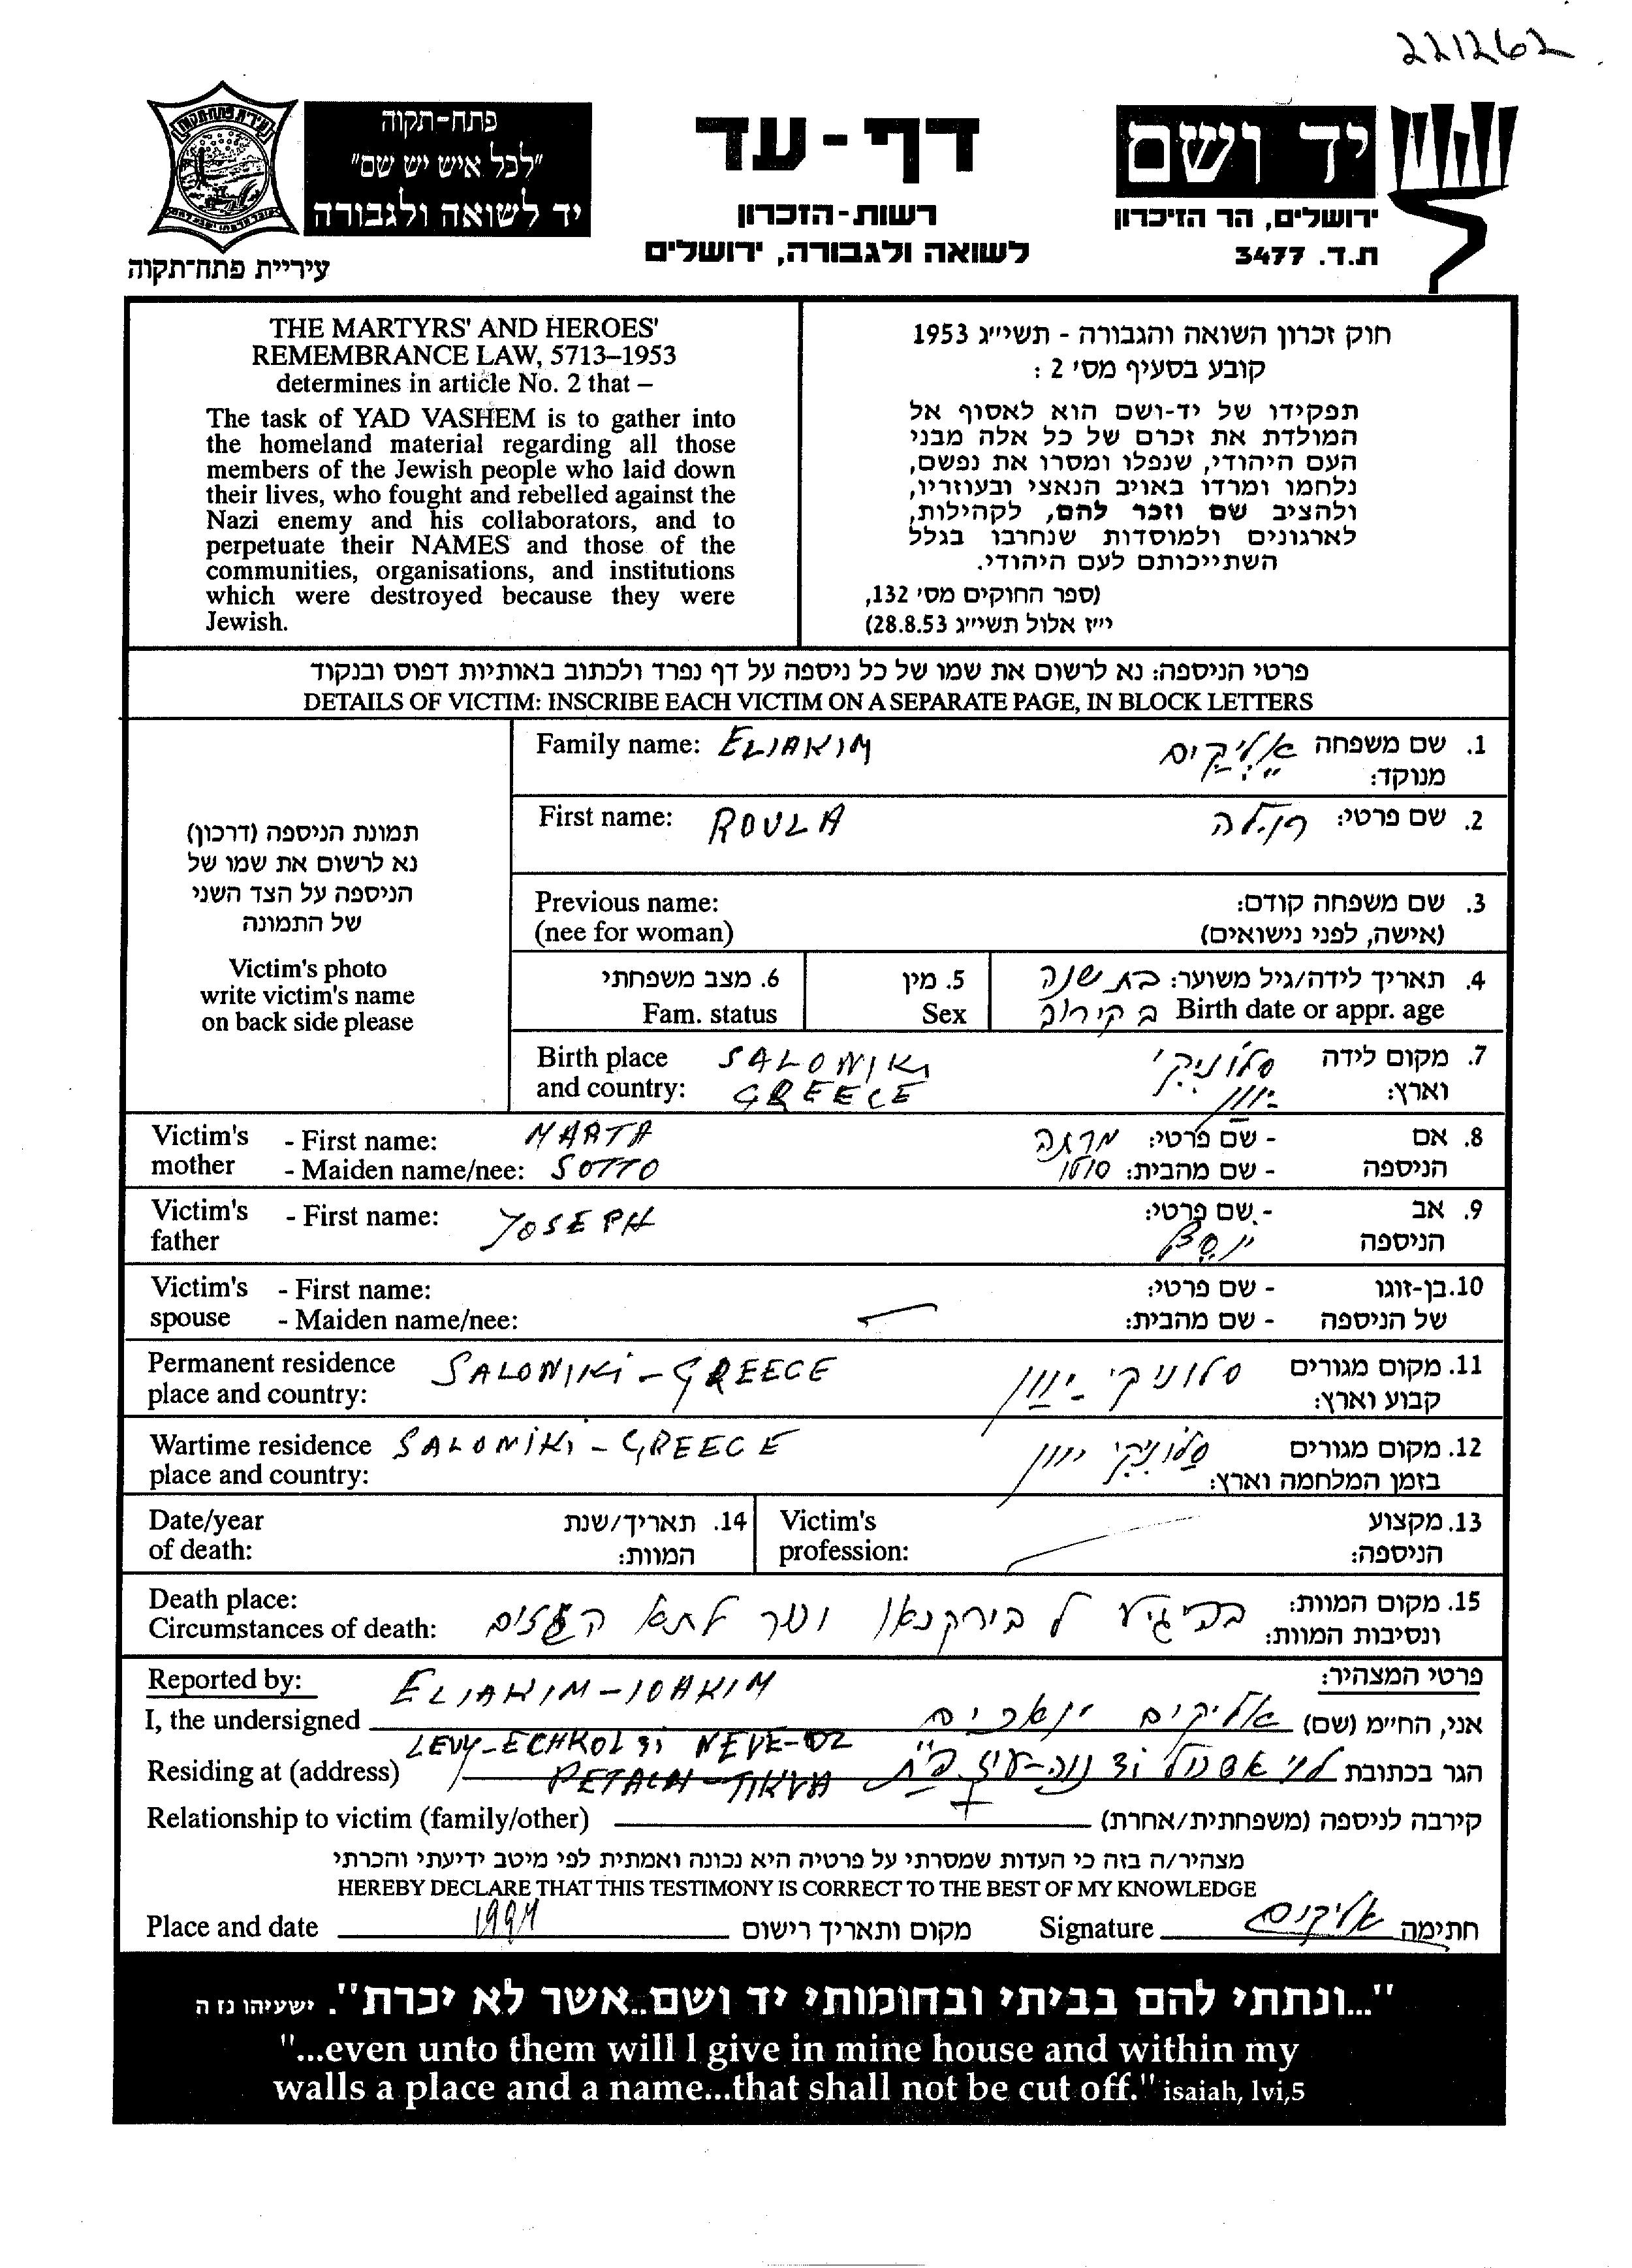 221262
פתח-תקוה
"לכל איש יש שם"
יד לשואה ולגבורה
עיריית פתח-תקוה
דף-עד
רשות-הזכרון
לשואה ולגבורה, ירושלים
יד ושם
ירושלים, הר הזיכרון
ת.ד. 3477
THE MARTYRS' AND HEROES'
REMEMBRANCE LAW, 5713–1953
determines in article No. 2 that –
The task of YAD VASHEM is to gather into
the homeland material regarding all those
members of the Jewish people who laid down
their lives, who fought and rebelled against the
Nazi enemy and his collaborators, and to
perpetuate their NAMES and those of the
communities, organisations, and institutions
which were destroyed because they were
Jewish.
חוק זכרון השואה והגבורה - תשי״ג 1953
קובע בסעיף מס׳ 2 :
תפקידו של יד-ושם הוא לאסוף אל
המולדת את זכרם של כל אלה מבני
העם היהודי, שנפלו ומסרו את נפשם,
נלחמו ומרדו באויב הנאצי ובעוזריו,
ולהציב שם וזכר להם, לקהילות,
לארגונים ולמוסדות שנחרבו בגלל
השתייכותם לעם היהודי.
(ספר החוקים מס׳ 132,
י״ז אלול תשי״ג 28.8.53)
פרטי הניספה: נא לרשום את שמו של כל ניספה על דף נפרד ולכתוב באותיות דפוס ובנקוד
DETAILS OF VICTIM: INSCRIBE EACH VICTIM ON A SEPARATE PAGE, IN BLOCK LETTERS
תמונת הניספה (דרכון)
נא לרשום את שמו של
הניספה על הצד השני
של התמונה
Victim's photo
write victim's name
on back side please
Family name: ELIAKIM אליקים 1. שם משפחה
מנוקד:
First name: ROULA רולה 2. שם פרטי:
Previous name: 3. שם משפחה קודם:
(nee for woman) (אישה, לפני נישואים)
6. מצב משפחתי 5. מין 4. תאריך לידה/גיל משוער: בת שנה
Fam. status Sex Birth date or appr. age בקירוב
Birth place SALONIKI סלוניקי 7. מקום לידה
and country: GREECE יוון וארץ:
Victim's - First name: MARTA מרתה - שם פרטי: 8. אם
mother - Maiden name/nee: SOTTO סוטו - שם מהבית: הניספה
Victim's - First name: JOSEPH - שם פרטי: 9. אב
father יוסף הניספה
Victim's - First name: - שם פרטי: 10. בן-זוגו
spouse - Maiden name/nee: - שם מהבית: של הניספה
Permanent residence SALONIKI - GREECE סלוניקי יוון 11. מקום מגורים
place and country: קבוע וארץ:
Wartime residence SALONIKI - GREECE סלוניקי יוון 12. מקום מגורים
place and country: בזמן המלחמה וארץ:
Date/year 14. תאריך/שנת Victim's 13. מקצוע
of death: המוות: profession: הניספה:
Death place: 15. מקום המוות:
Circumstances of death: ל בירקנאו ישר לתא הגזים ונסיבות המוות:
Reported by: ELIAKIM-IOAKIM פרטי המצהיר:
I, the undersigned אליקים יואכים אני, החי״מ (שם)
LEVY-ECHKOL 31 NEVE-OZ
Residing at (address) PETACH-TIKVA לוי אשכול 31 נוה-עוז פ״ת הגר בכתובת
Relationship to victim (family/other) קירבה לניספה (משפחתית/אחרת)
מצהיר/ה בזה כי העדות שמסרתי על פרטיה היא נכונה ואמתית לפי מיטב ידיעתי והכרתי
HEREBY DECLARE THAT THIS TESTIMONY IS CORRECT TO THE BEST OF MY KNOWLEDGE
Place and date מקום ותאריך רישום Signature אליקים חתימה
"...ונתתי להם בביתי ובחומותי יד ושם..אשר לא יכרת". ישעיהו נז ה
"...even unto them will I give in mine house and within my
walls a place and a name...that shall not be cut off." isaiah, lvi,5